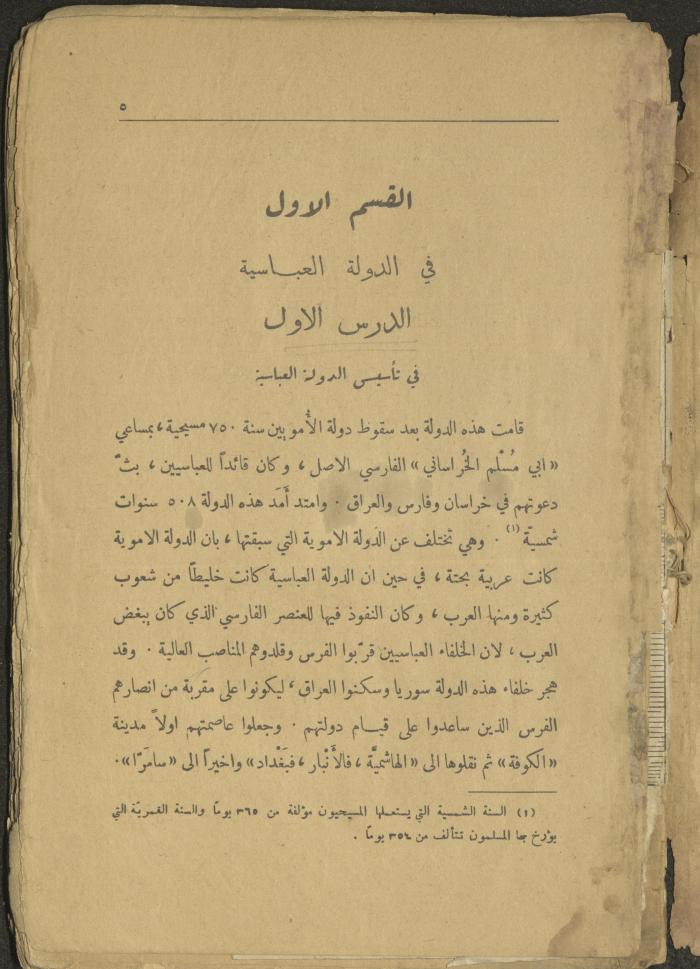 ٥
القسم الاول
في الدولة العبـاسية
الدرس الاول
في تأسيس الدولة العباسية
قامت هذه الدولة بعد سقوط دولة الأُمويين سنة ٧٥٠ مسيحية، بمساعي
«ابي مُسْلم الخُراساني» الفارسي الاصل، وكان قائداً للعباسيين، بثّ
دعوتهم في خراسان وفارس والعراق. وامتد أَمَد هذه الدولة ٥٠٨ سنوات
شمسيّة (١). وهي تختلف عن الدولة الاموية التي سبقتها، بان الدولة الاموية
كانت عربية بحتة، في حين ان الدولة العباسية كانت خليطاً من شعوب
كثيرة ومنها العرب، وكان النفوذ فيها للعنصر الفارسي الذي كان يبغض
العرب، لان الخلفاء العباسيين قرّبوا الفرس وقلدوهم المناصب العالية. وقد
هجر خلفاء هذه الدولة سوريا وسكنوا العراق، ليكونوا على مقربة من انصارهم
الفرس الذين ساعدوا على قيـام دولتهم. وجعلوا عاصمتهم اولاً مدينة
«الكوفة» ثم نقلوها الى «الهاشميَّة، فالأَنْبار، فبَغْداد» واخيراً الى «سامَرّا».
(١) السنة الشمسية التي يستعملها المسيحيون مؤلفة من ٣٦٥ يوماً والسنة القمريّة التي
يؤرخ بها المسلمون تتألف من ٣٥٤ يوماً.